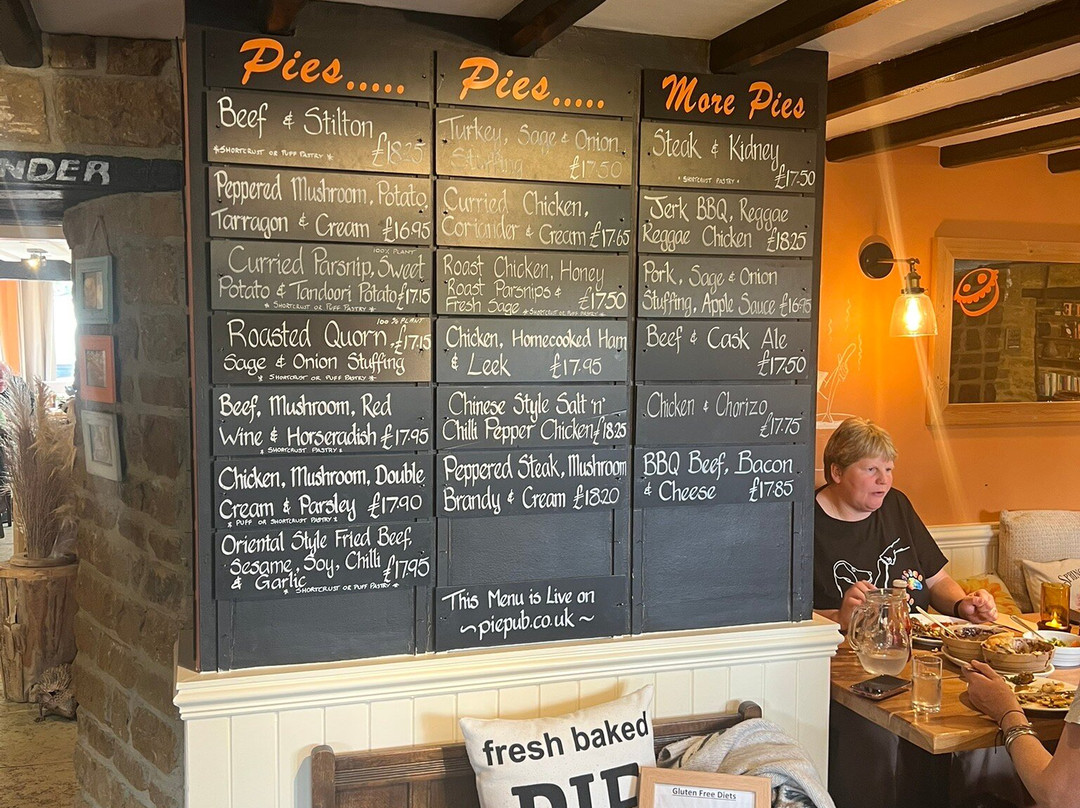 NDER
Pies.....
Beef & Stilton
*SHORTCRUST OR PUFF PASTRY*
£18.25
Peppered Mushroom, Potato,
Tarragon & Cream £16.95
100% PLANT
Curried Parsnip, Sweet
Potato & Tandoori Potato £17.15
* SHORTCRUST OR PUFF PASTRY *
100% PLANT
Roasted Quorn £17.15
Sage & Onion Stuffing
* SHORTCRUST OR PUFF PASTRY *
Beef, Mushroom, Red
Wine & Horseradish £17.95
* SHORTCRUST PASTRY *
Chicken, Mushroom, Double
Cream & Parsley £17.90
* PUFF OR SHORTCRUST PASTRY *
Oriental Style Fried Beef,
Sesame, Soy, Chilli
& Garlic £17.95
* SHORTCRUST OR PUFF PASTRY *
Pies.....
Turkey, Sage & Onion
Stuffing £17.50
Curried Chicken,
Coriander & Cream £17.65
Roast Chicken, Honey
Roast Parsnips & £17.50
Fresh Sage * SHORTCRUST OR PUFF PASTRY *
Chicken, Homecooked Ham
& Leek £17.95
Chinese Style Salt 'n'
Chilli Pepper Chicken £18.25
Peppered Steak, Mushroom
Brandy & Cream £18.20
This Menu is Live on
~piepub.co.uk~
More Pies
Steak & Kidney
* SHORTCRUST PASTRY *
£17.50
Jerk BBQ, Reggae
Reggae Chicken £18.25
Pork, Sage & Onion
Stuffing, Apple Sauce £16.95
Beef & Cask Ale
£17.50
Chicken & Chorizo
£17.75
BBQ Beef, Bacon
& Cheese £17.85
fresh baked
PIE
Gluten Free Diets